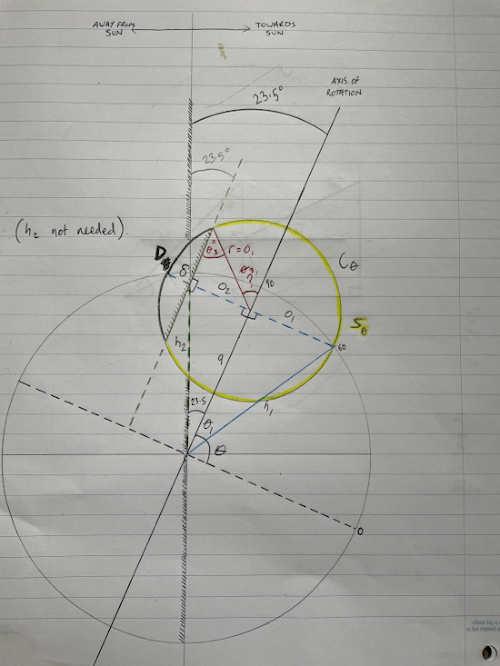 AWAY FROM SUN
TOWARDS SUN
AXIS OF ROTATION
23.5°
23.5°
(h₂ not needed).
D
δ
θ₃
r=O₁
θ₃,
?
90
Cθ
O₂
O₁
Sθ
60
h₂
a
23.5
h₁
θ₁
θ
0